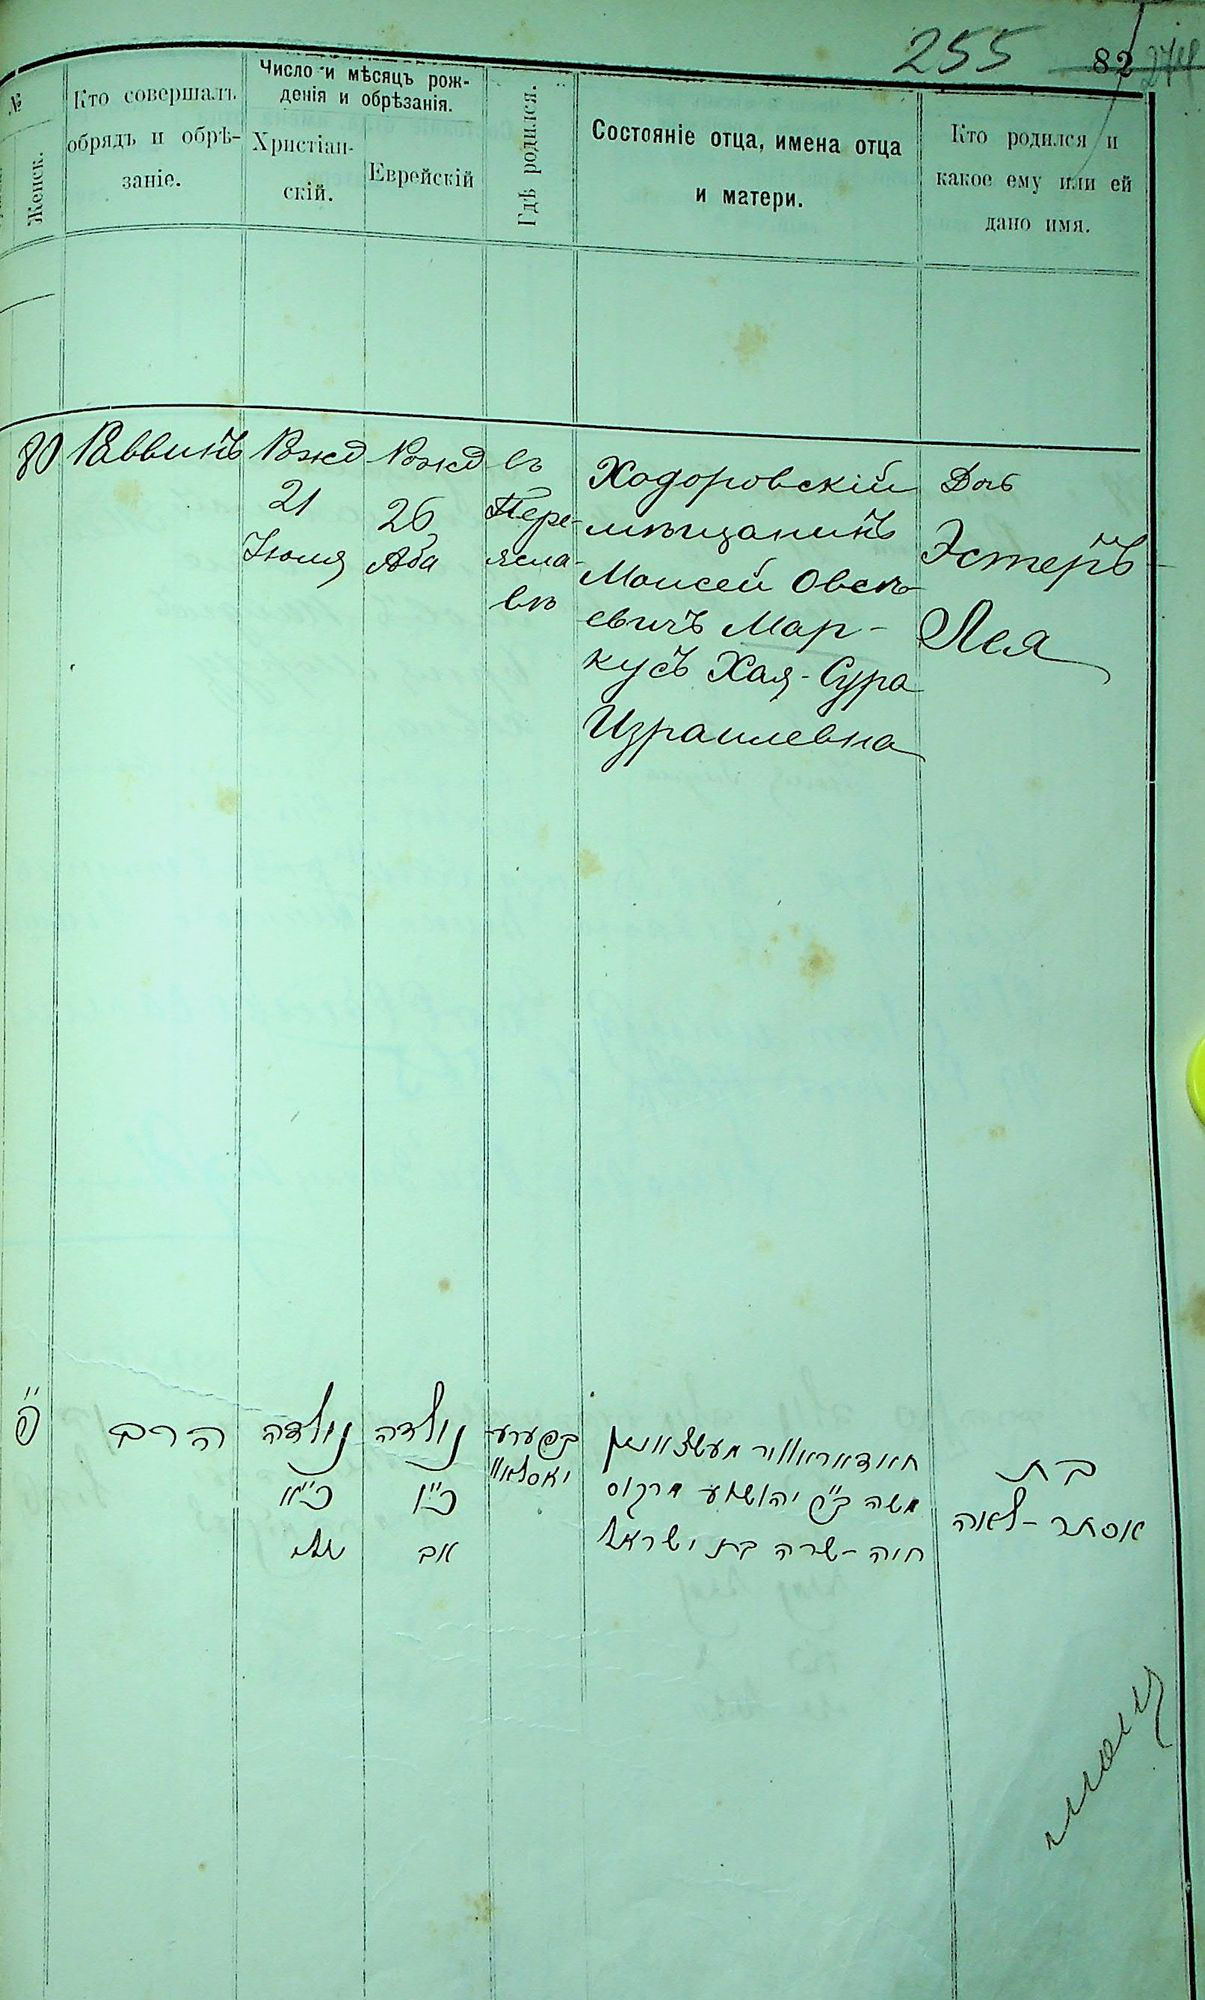 255 82 274
№
Женск.
Кто совершалъ
обрядъ и обрѣ-
заніе.
Число и мѣсяцъ рож-
денія и обрѣзанія.
Христіан-
скій.
Еврейскій
Гдѣ родился.
Состояніе отца, имена отца
и матери.
Кто родился и
какое ему или ей
дано имя.
80
Раввинъ
Рожд
21
Іюля
Рожд
26
Аба
въ
Пере-
ясла-
вѣ
Ходоровскій
мѣщанинъ
Моисей Овсѣ-
евичъ Мар-
кусъ Хая-Сура
Израилевна
Дочь
Эстеръ-
Лея
פ"
הרב
נולדה
כ"א
יולי
נולדה
כ"ו
אב
בפערע
יאסלאוו
חאדאראוור מעשצאנין
משה ב"ר יהושע מרקוס
חיה-שרה בת ישראל
בת
אסתר-לאה